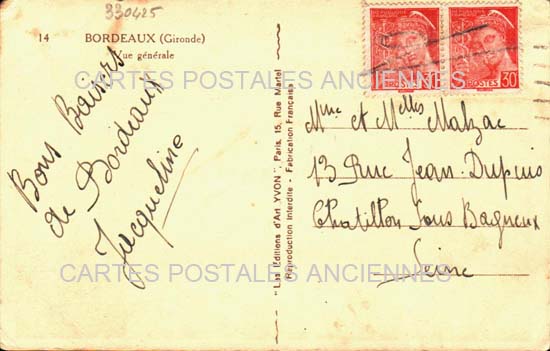 330425
14 BORDEAUX (Gironde)
Vue générale
Bons Baisers
de Bordeaux
Jacqueline
"Les Editions d'Art YVON", Paris, 15, Rue Martel
Reproduction Interdite - Fabrication Française
POSTES 30
Mme et Melles Malzac
13 Rue Jean Dupuis
Chatillon Sous Bagneux
Seine
CARTES POSTALES ANCIENNES
CARTES POSTALES ANCIENNES